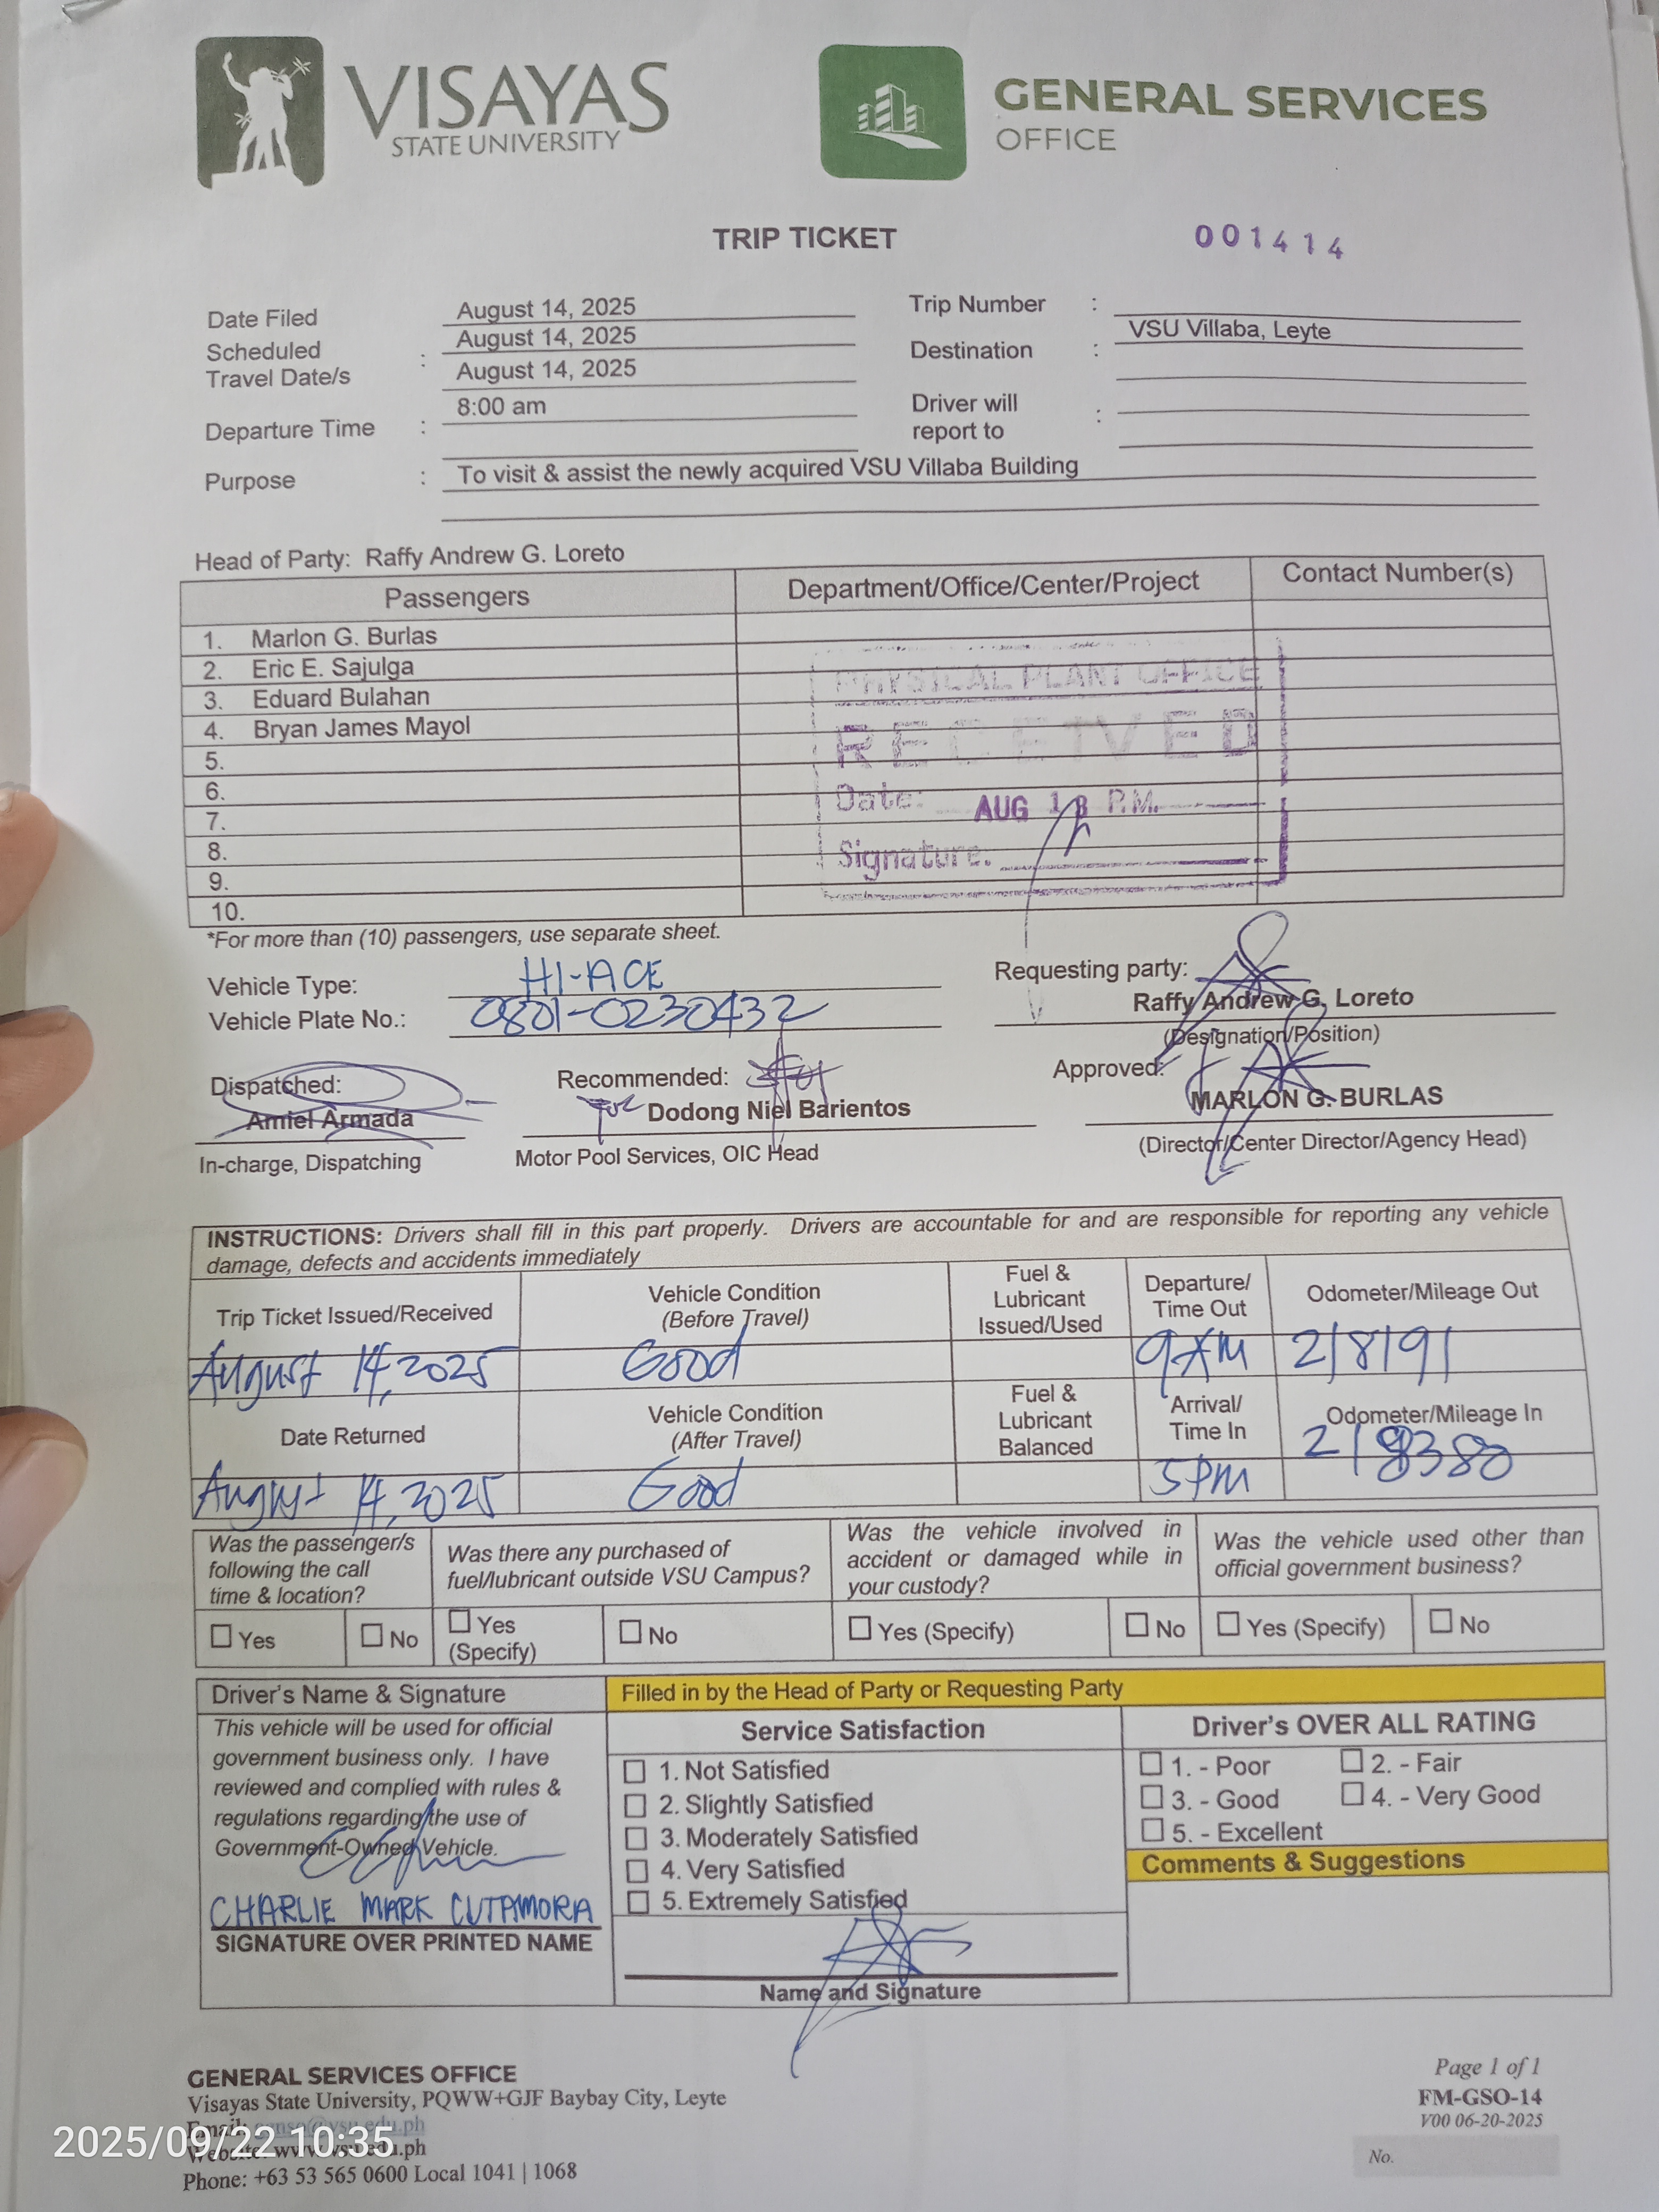 VISAYAS
STATE UNIVERSITY
GENERAL SERVICES
OFFICE
TRIP TICKET
001414
Date Filed August 14, 2025
Scheduled Travel Date/s : August 14, 2025
August 14, 2025
Departure Time : 8:00 am
Trip Number :
Destination : VSU Villaba, Leyte
Driver will report to :
Purpose : To visit & assist the newly acquired VSU Villaba Building
Head of Party: Raffy Andrew G. Loreto
Passengers Department/Office/Center/Project Contact Number(s)
1. Marlon G. Burlas
2. Eric E. Sajulga
3. Eduard Bulahan
4. Bryan James Mayol
5.
6.
7.
8.
9.
10.
PHYSICAL PLANT OFFICE
RECEIVED
Date: AUG P.M.
Signature:
*For more than (10) passengers, use separate sheet.
Vehicle Type: HI-ACE
Vehicle Plate No.: 0801-0230432
Requesting party:
Raffy Andrew G. Loreto
(Designation/Position)
Dispatched:
Amiel Armada
In-charge, Dispatching
Recommended:
Dodong Niel Barientos
Motor Pool Services, OIC Head
Approved:
MARLON G. BURLAS
(Director/Center Director/Agency Head)
INSTRUCTIONS: Drivers shall fill in this part properly. Drivers are accountable for and are responsible for reporting any vehicle
damage, defects and accidents immediately
Trip Ticket Issued/Received Vehicle Condition (Before Travel) Fuel & Lubricant Issued/Used Departure/ Time Out Odometer/Mileage Out
August 14, 2025 Good 9AM 218191
Date Returned Vehicle Condition (After Travel) Fuel & Lubricant Balanced Arrival/ Time In Odometer/Mileage In
August 14, 2025 Good 5PM 218380
Was the passenger/s following the call time & location?
Was there any purchased of fuel/lubricant outside VSU Campus?
Was the vehicle involved in accident or damaged while in your custody?
Was the vehicle used other than official government business?
Yes No Yes (Specify) No Yes (Specify) No Yes (Specify) No
Driver's Name & Signature
This vehicle will be used for official
government business only. I have
reviewed and complied with rules &
regulations regarding the use of
Government-Owned Vehicle.
CHARLIE MARK CUTAMORA
SIGNATURE OVER PRINTED NAME
Filled in by the Head of Party or Requesting Party
Service Satisfaction
1. Not Satisfied
2. Slightly Satisfied
3. Moderately Satisfied
4. Very Satisfied
5. Extremely Satisfied
Name and Signature
Driver's OVER ALL RATING
1. - Poor 2. - Fair
3. - Good 4. - Very Good
5. - Excellent
Comments & Suggestions
GENERAL SERVICES OFFICE
Visayas State University, PQWW+GJF Baybay City, Leyte
Email:
Website: www.vsu.edu.ph
Phone: +63 53 565 0600 Local 1041 | 1068
Page 1 of 1
FM-GSO-14
V00 06-20-2025
No.
2025/09/22 10:35